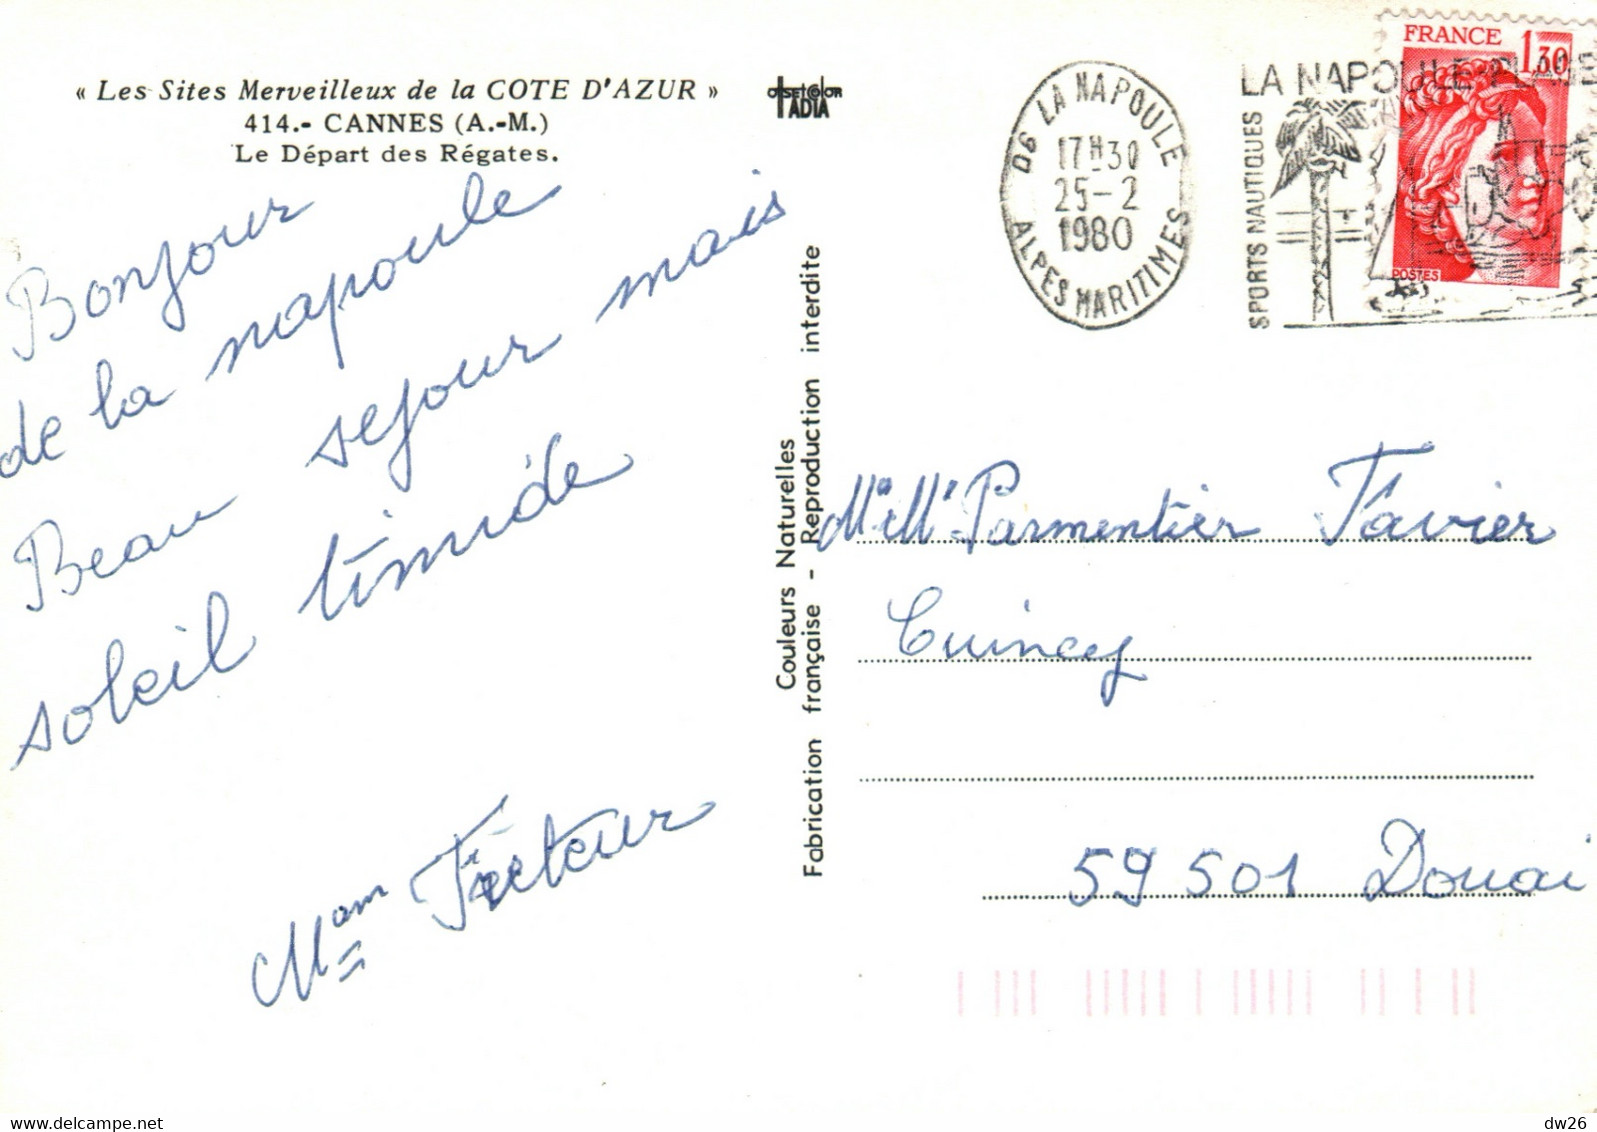 « Les Sites Merveilleux de la COTE D'AZUR »
414.- CANNES (A.-M.)
Le Départ des Régates.
Bonjour
de la napoule
Beau sejour mais
soleil timide
Mam Facteur
OFFSETCOLOR
TADIA
Couleurs Naturelles
Fabrication française - Reproduction interdite
06 LA NAPOULE
17H30
25-2
1980
ALPES MARITIMES
LA NAPOULE PLAGE
SPORTS NAUTIQUES
FRANCE 1,30
POSTES
Mr Parmentier Favier
Cuincy
59501 Douai
delcampe.net
dw26